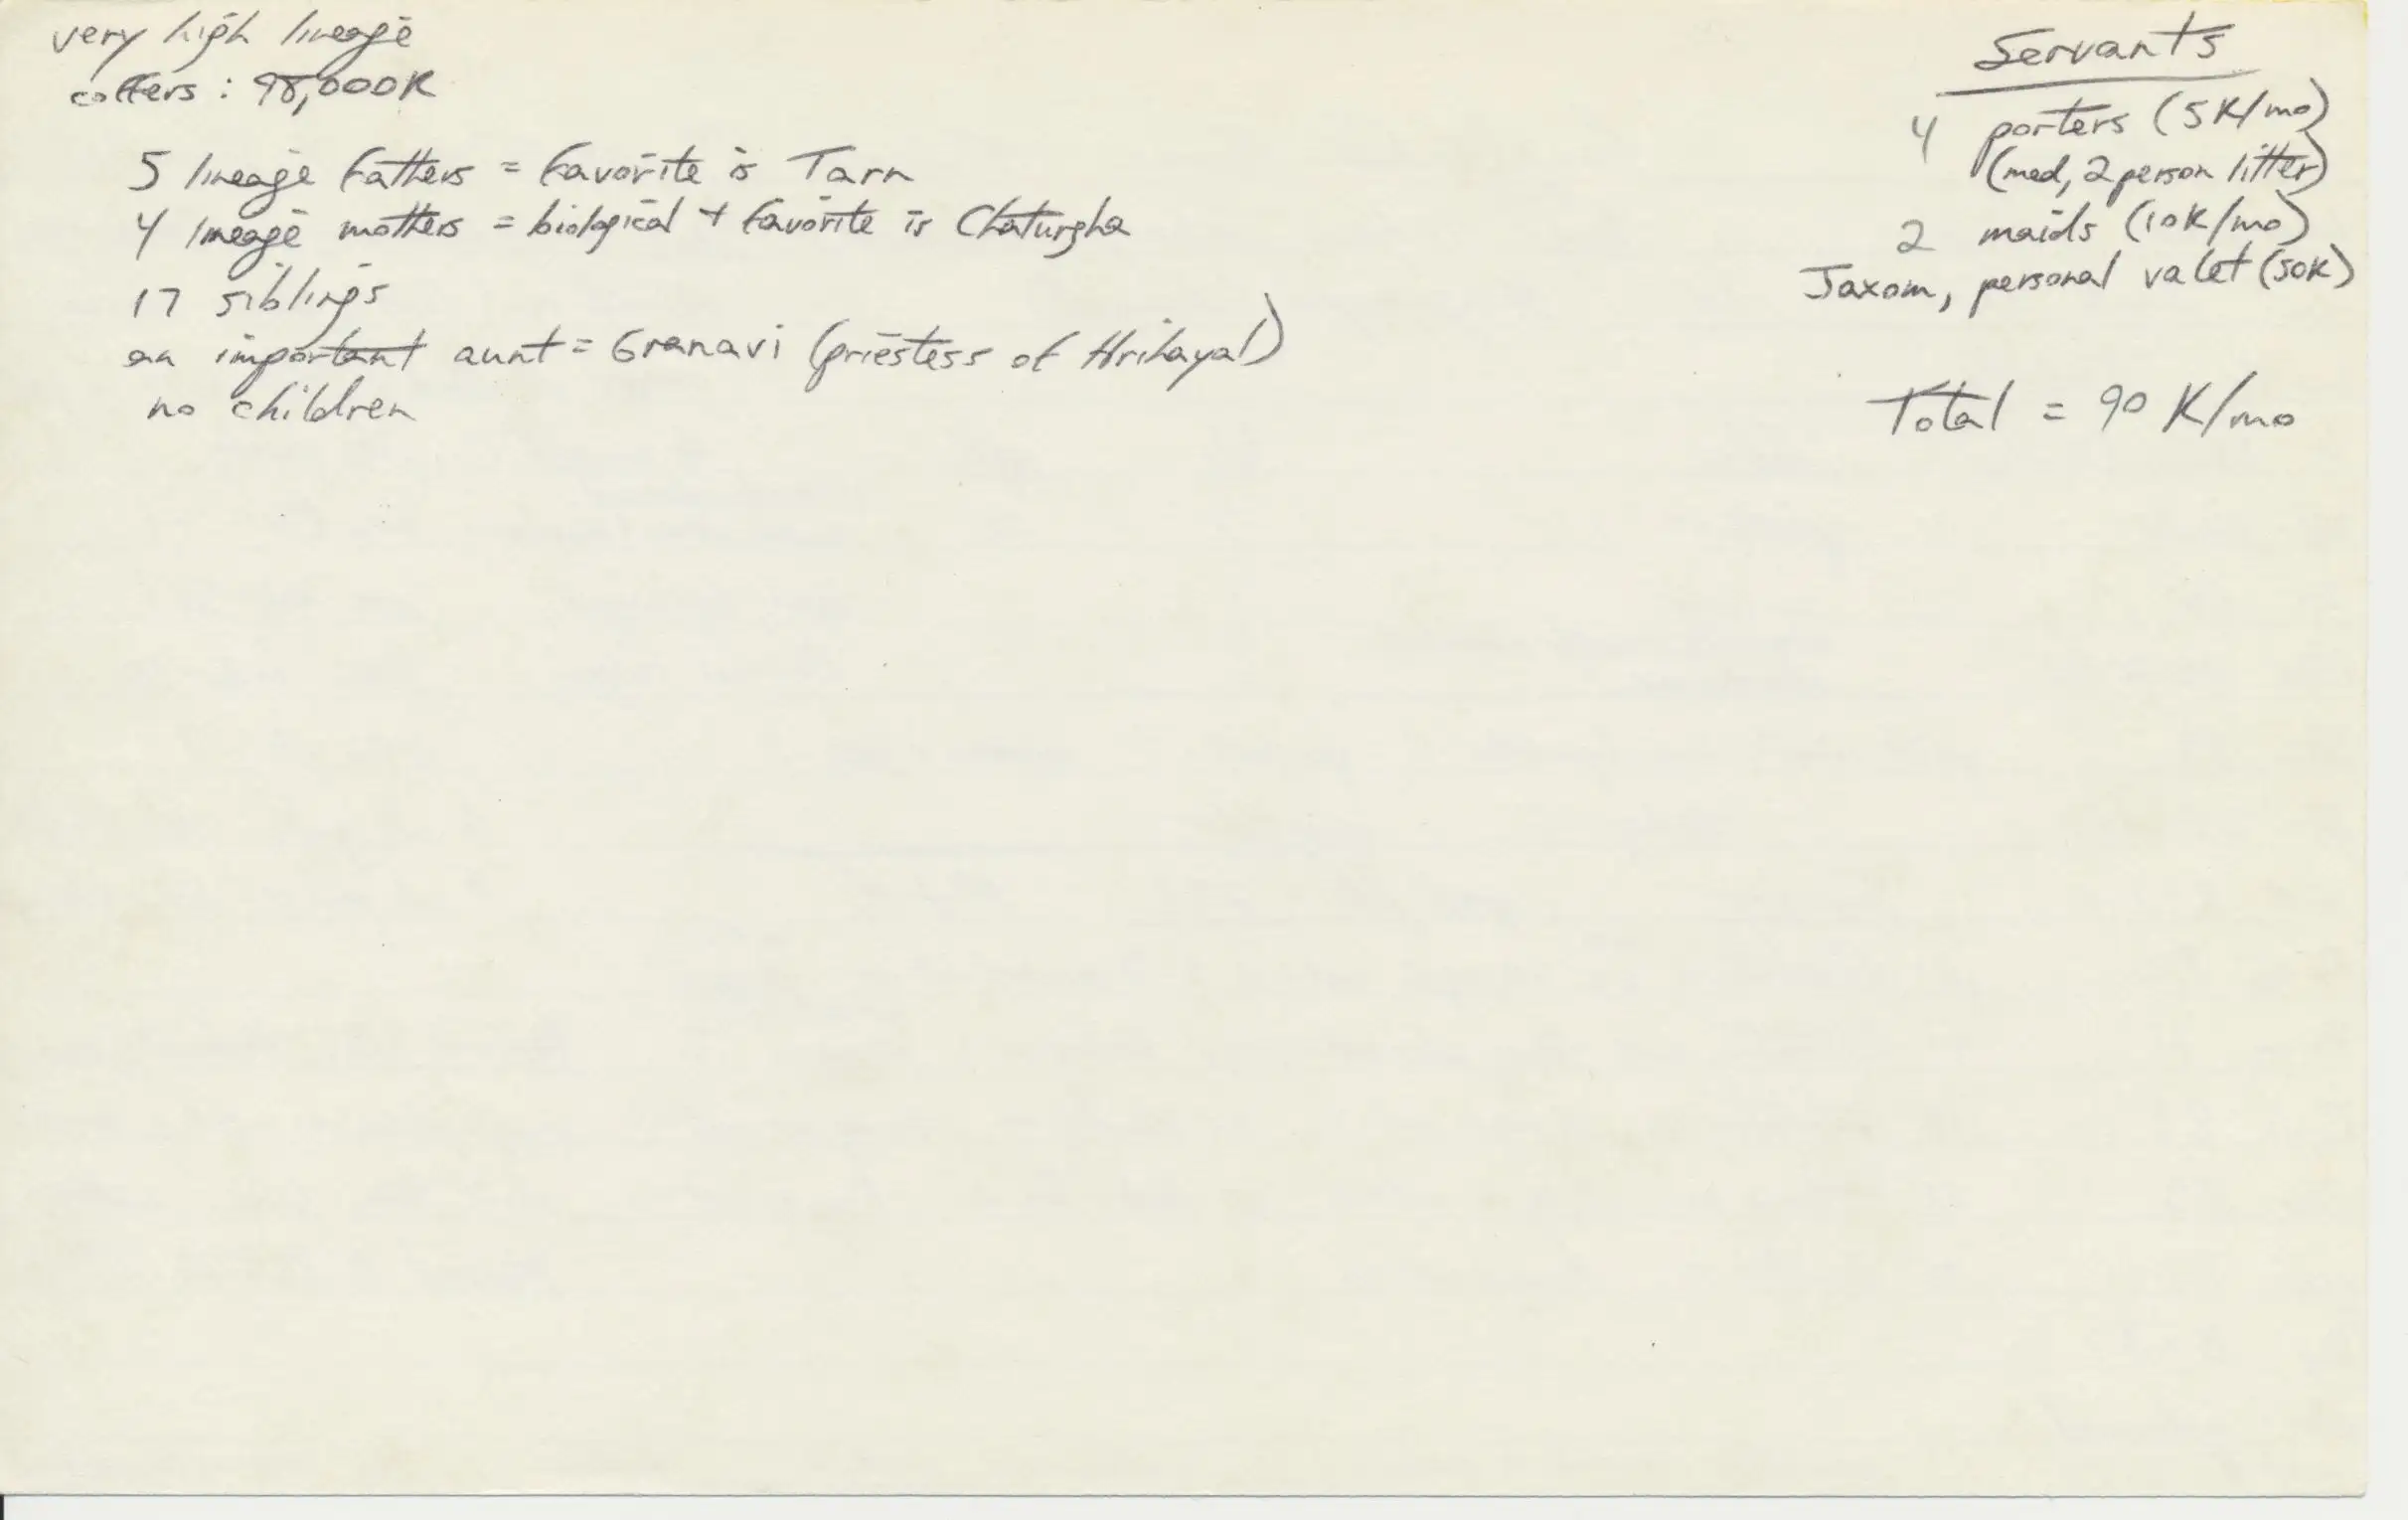 very high lineage
coffers : 98,000K
5 lineage fathers = favorite is Tarn
4 lineage mothers = biological + favorite is Chaturgha
17 siblings
an important aunt = Granavi (priestess of Hrihayal)
no children
Servants
4 porters (5K/mo)
(med, 2 person litter)
2 maids (10K/mo)
Jaxom, personal valet (50K)
Total = 90 K/mo